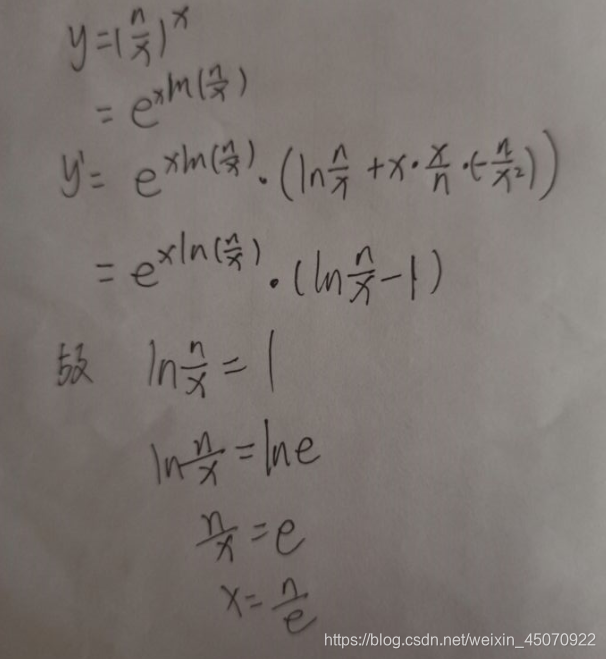 y=(n/x)^x
= e^{xln(n/x)}
y'= e^{xln(n/x)}·(ln n/x +x·x/n·(-n/x²))
= e^{xln(n/x)}·(ln n/x -1)
故 ln n/x = 1
ln n/x = lne
n/x = e
x= n/e
https://blog.csdn.net/weixin_45070922